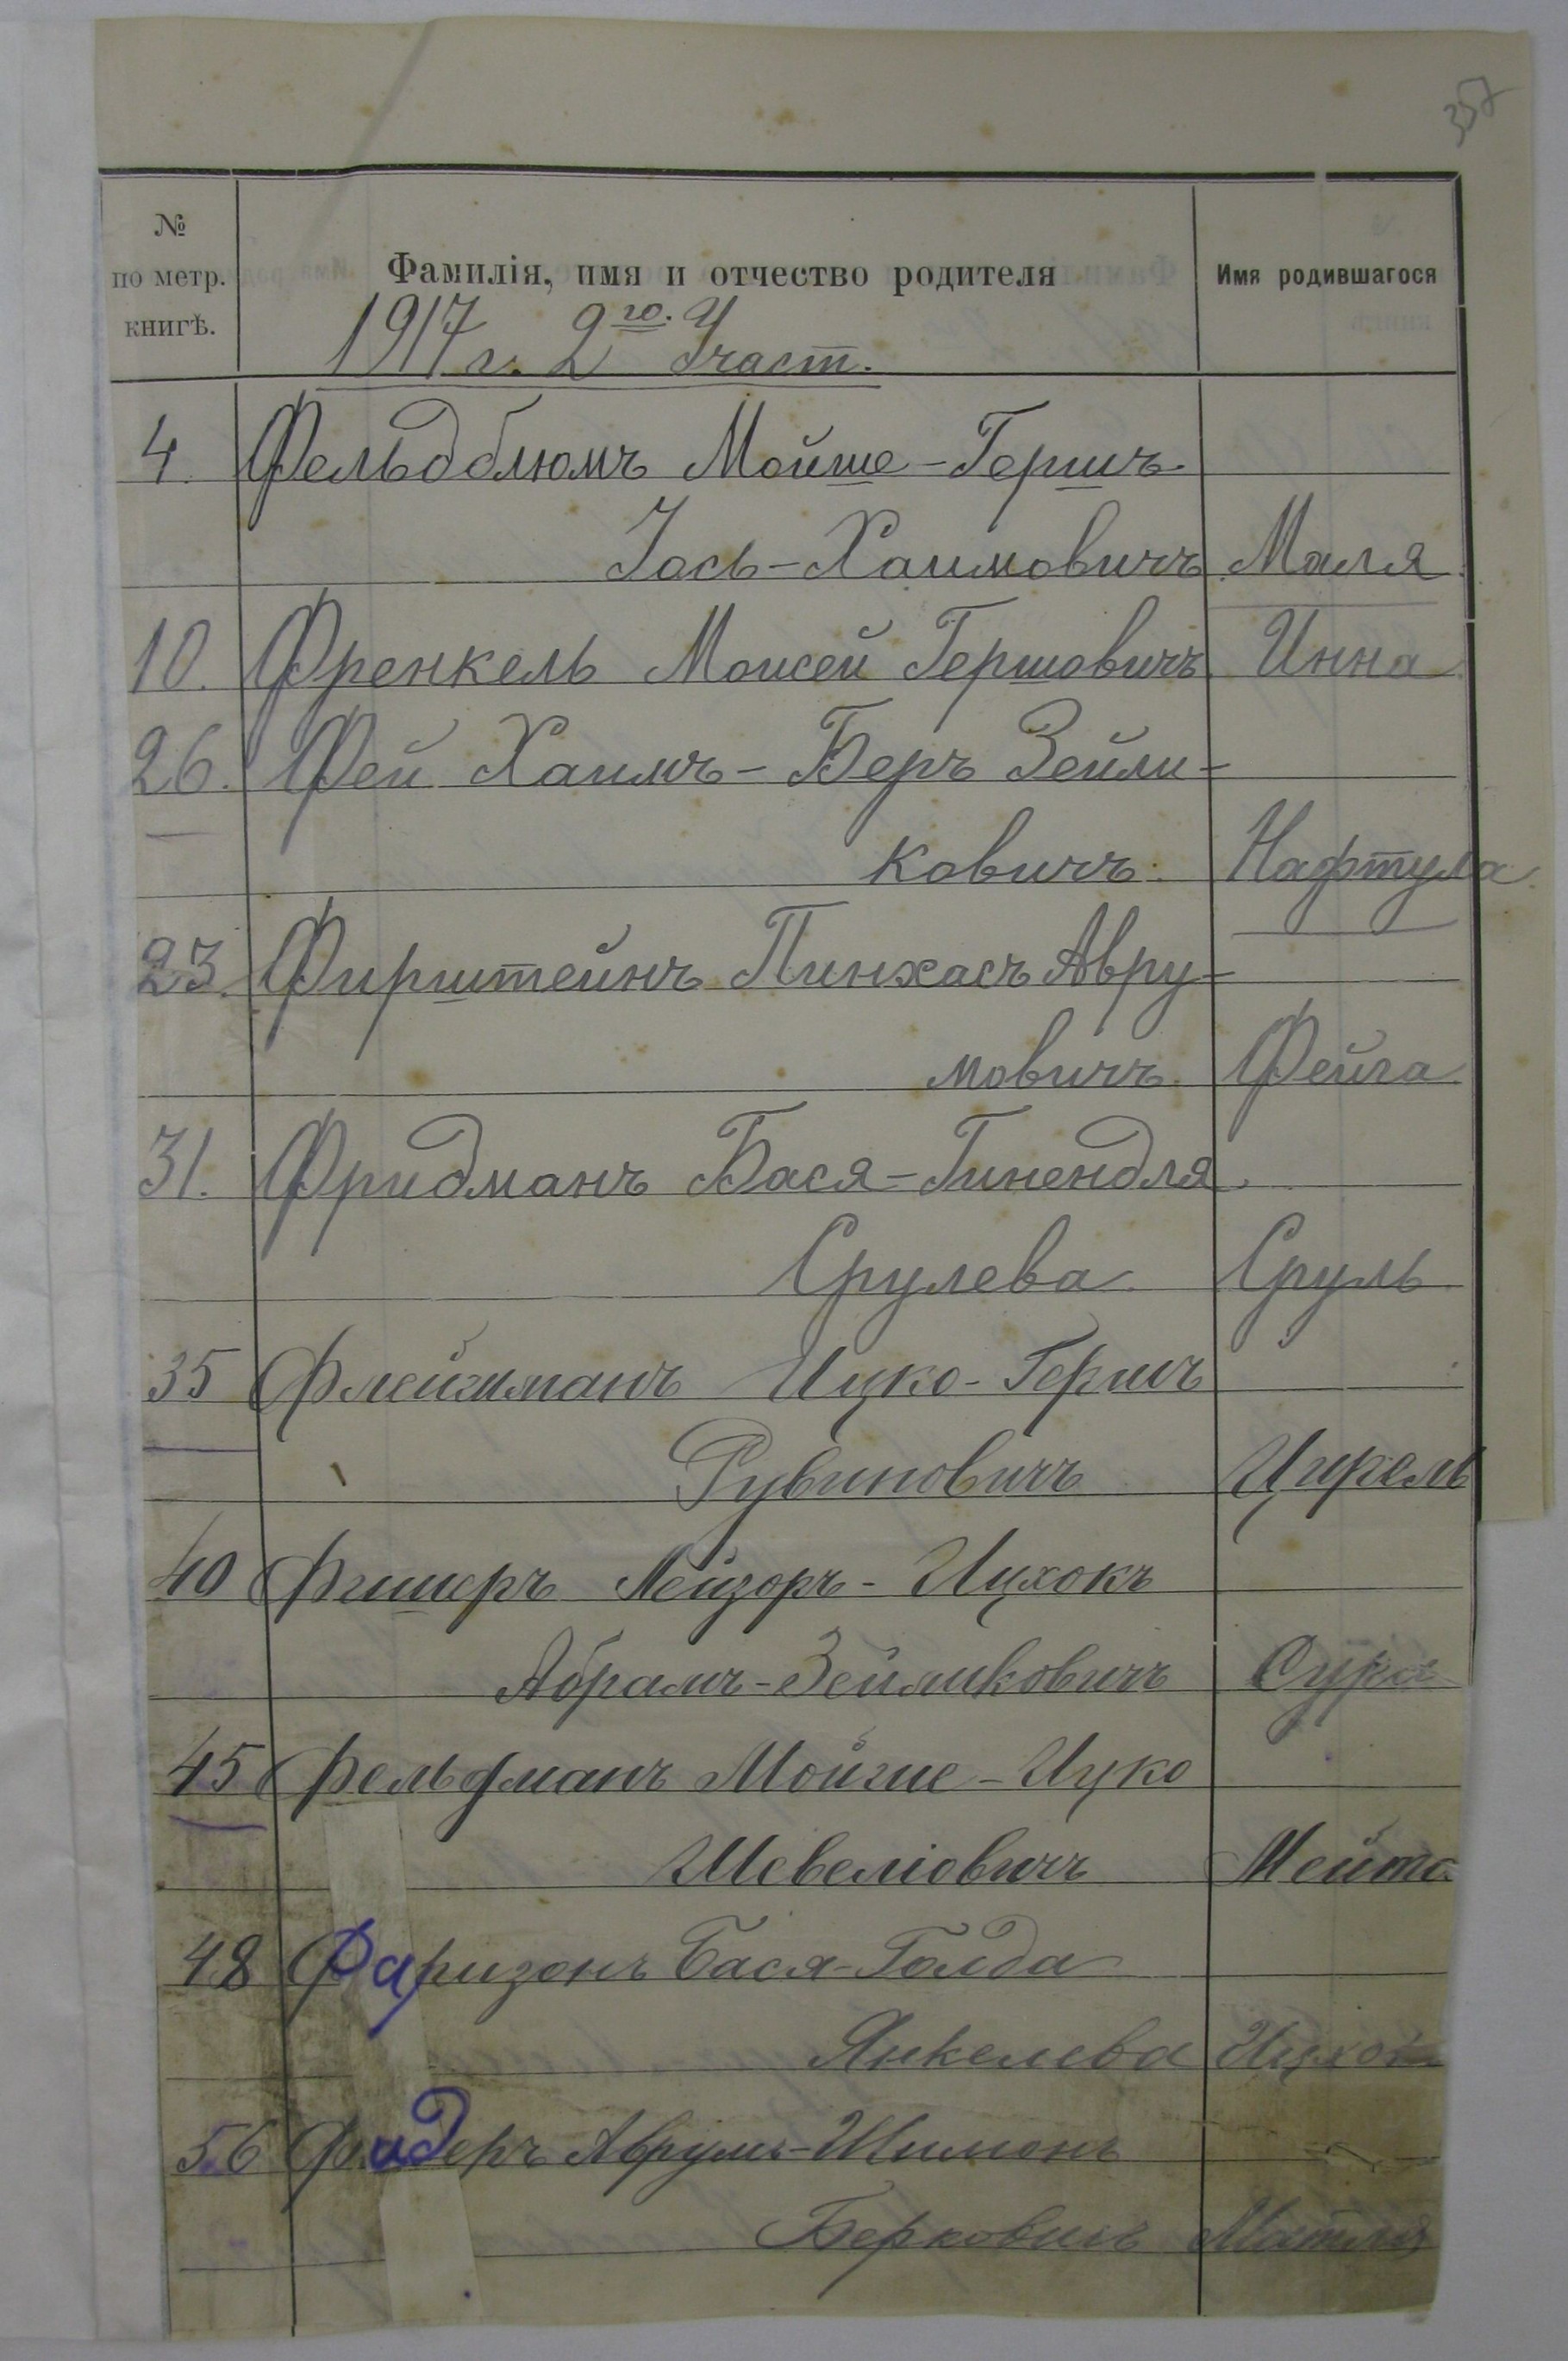 357
№
по метр.
книгѣ.
Фамилія, имя и отчество родителя
Имя родившагося
1917 г. 2го. Участ.
4. Фельдблюмъ Мойше-Гершъ
Іось-Хаимовичъ Маля
10. Френкель Моисей Гершовичъ Инна
26. Фей Хаимъ-Беръ Зейли-
ковичъ. Нафтула
23. Фирштейнъ Пинхасъ Авру-
мовичъ. Фейга
31. Фридманъ Бася-Гинендля
Срулева Сруль
35 Флейшманъ Ицко-Гершъ
Рувиновичъ Цирель
40 Фишеръ Лейзоръ-Ицхокъ
Абрамъ-Зейликовичъ Сура
45 Фельдманъ Мойше-Ицко
Шевеліовичъ Мейта
48 Фаризонъ Бася-Голда
Янкелева Ицхок
56 Фидеръ Аврумъ-Шимонъ
Берковичъ Матля